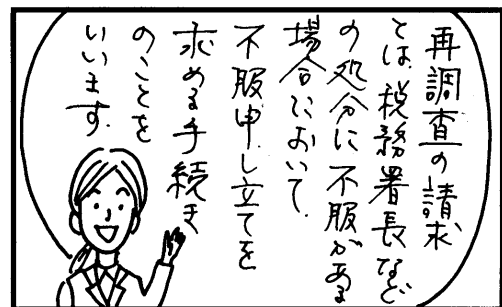 再調査の請求
とは、税務署長など
の処分に不服がある
場合において、
不服申し立てを
求める手続き
のことを
いいます。